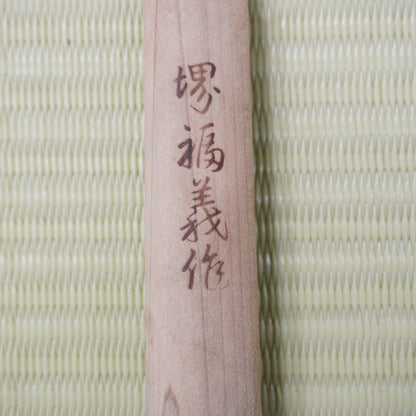 堺福義作